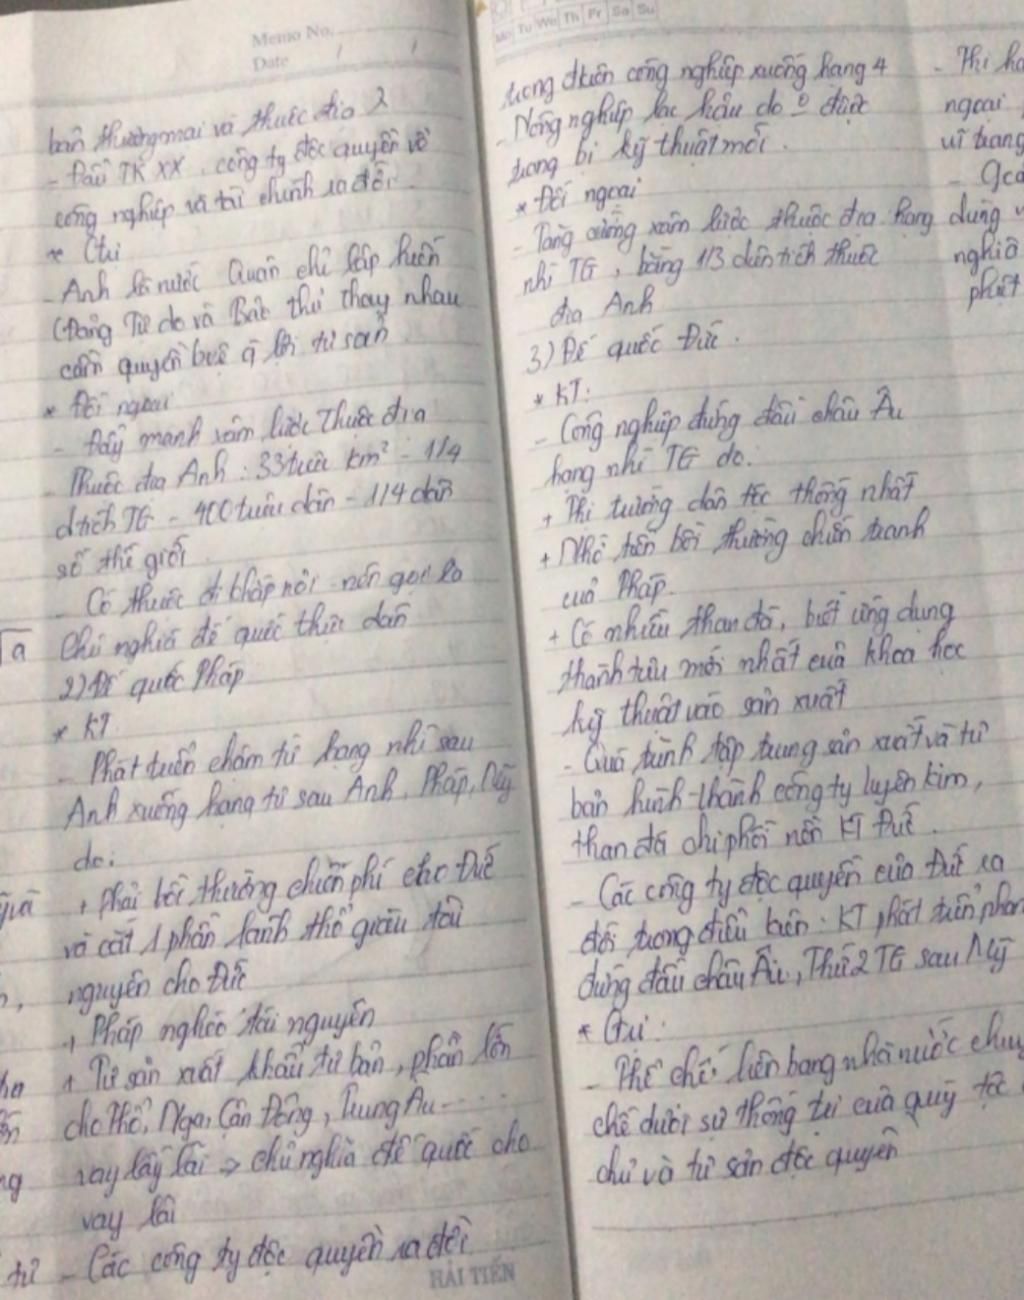 Memo No.
Date
bản thương mại và thuộc địa
- Đầu TK XX, công ty độc quyền về
công nghiệp và tài chính ra đời.
* Ctrị
- Anh là nước Quân chủ lập hiến
(Đảng Tự do và Bảo thủ thay nhau
cầm quyền bvệ q lợi tư sản
* Đối ngoại
- Đẩy mạnh xâm lược thuộc địa
- Thuộc địa Anh: 33 triệu km² - 1/4
dtích TG - 400 triệu dân - 1/4 dân
số thế giới.
- Có thuộc đ khắp nơi nên gọi là
Chủ nghĩa đế quốc thực dân
2) Đế quốc Pháp
* KT
- Phát triển chậm từ hạng nhì sau
Anh xuống hạng tư sau Anh, Pháp, Mỹ
do:
+ Phải bồi thường chiến phí cho Đức
và cắt 1 phần lãnh thổ giàu tài
nguyên cho Đức
+ Pháp nghèo tài nguyên
+ Tư sản xuất khẩu tư bản, phần lớn
cho Thổ, Nga, Cận Đông, Trung Âu....
vay lấy lãi => chủ nghĩa đế quốc cho
vay lãi
- Các công ty độc quyền ra đời
HẢI TIẾN
Mo Tu We Th Fr Sa Su
trong đkiện công nghiệp xuống hạng 4
- Nông nghiệp lạc hậu do o được
trang bị kỹ thuật mới.
* Đối ngoại
- Tăng cường xâm lược thuộc địa hạng
nhì TG, bằng 1/3 diện tích thuộc
địa Anh
3) Đế quốc Đức.
* KT:
- Công nghiệp đứng đầu châu Âu
hạng nhì TG do.
+ Thị trường dân tộc thống nhất
+ Nhờ tiền bồi thường chiến tranh
của Pháp.
+ Có nhiều than đá, biết ứng dụng
thành tựu mới nhất của khoa học
kỹ thuật vào sản xuất
- Quá trình tập trung sản xuất và tư
bản hình thành công ty luyện kim,
than đá chi phối nền KT Đức.
- Các công ty độc quyền của Đức ra
đời trong điều kiện: KT phát triển
đứng đầu châu Âu, Thứ 2 TG sau Mỹ
* Ctrị:
- Thể chế: liên bang nhà nước
chế dưới sự thống trị của quý tộc
chủ và tư sản độc quyền
ngoại
vũ trang
dung
nghĩa
phát